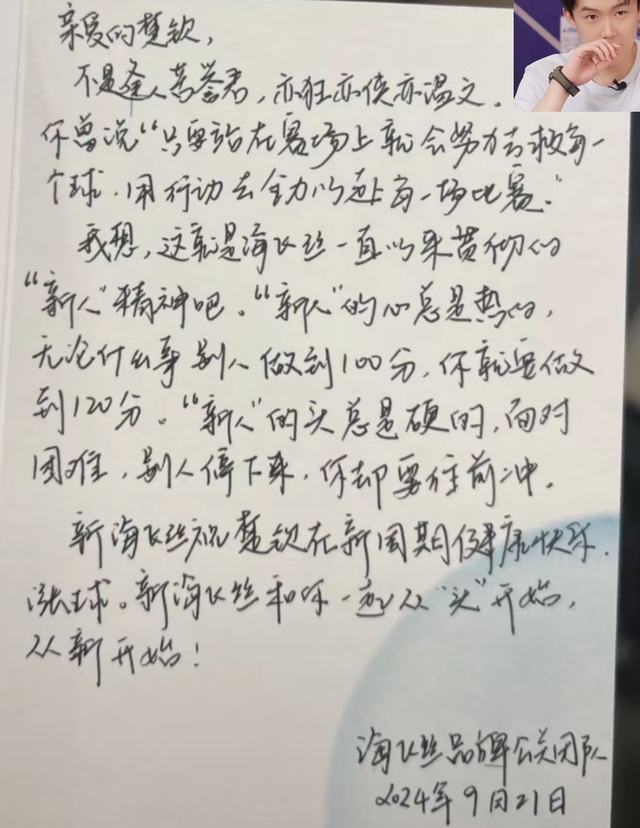 亲爱的楚钦，
不是逢人苦誉君，亦狂亦侠亦温文。
你曾说“只要站在赛场上就会努力去救每一
个球，用行动去全力以赴每一场比赛。”
我想，这就是海飞丝一直以来贯彻的
“新人”精神吧。“新人”的心总是热的，
无论什么事别人做到100分，你就要做
到120分。“新人”的头总是硬的，面对
困难，别人停下来，你却要往前冲。
新海飞丝祝楚钦在新周期健康快乐，
涨球。新海飞丝和你一起从“头”开始，
从新开始！
海飞丝品牌公关团队
2024年9月21日